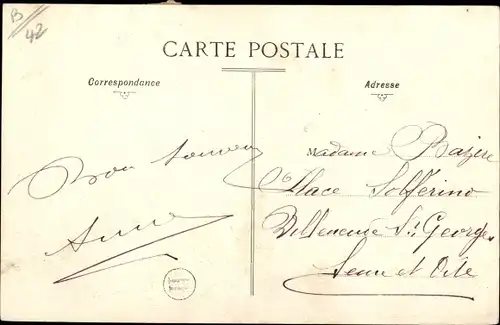 B
42
CARTE POSTALE
Correspondance
Adresse
Bon souvenir
Anna
Madame
Place Solferino
Villeneuve St Georges
Seine et Oise